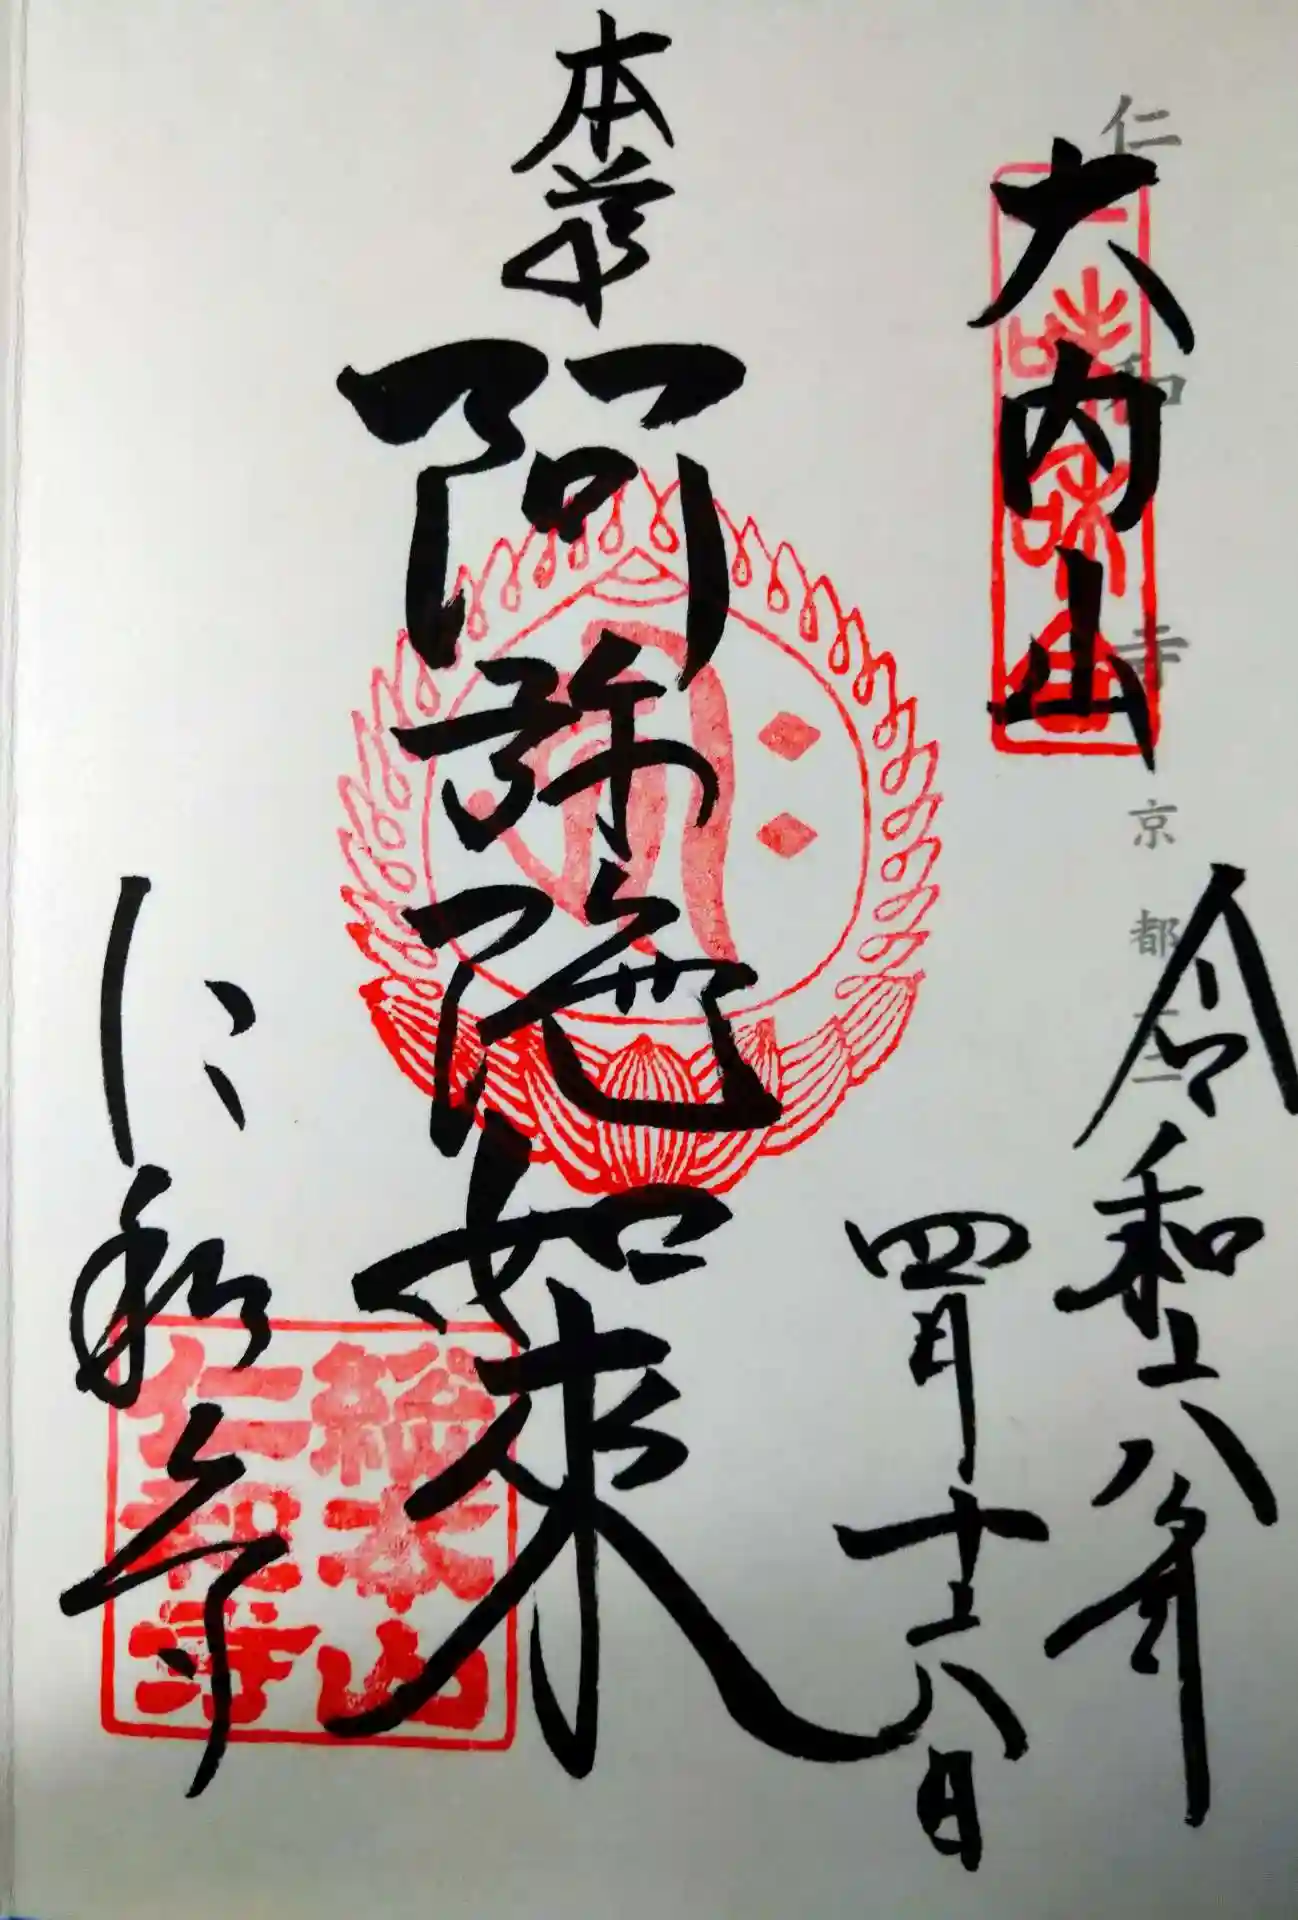 仁和寺
京都
大内山
令和六年
四月十六日
本尊
阿弥陀如来
仁和寺
総本山
仁和寺